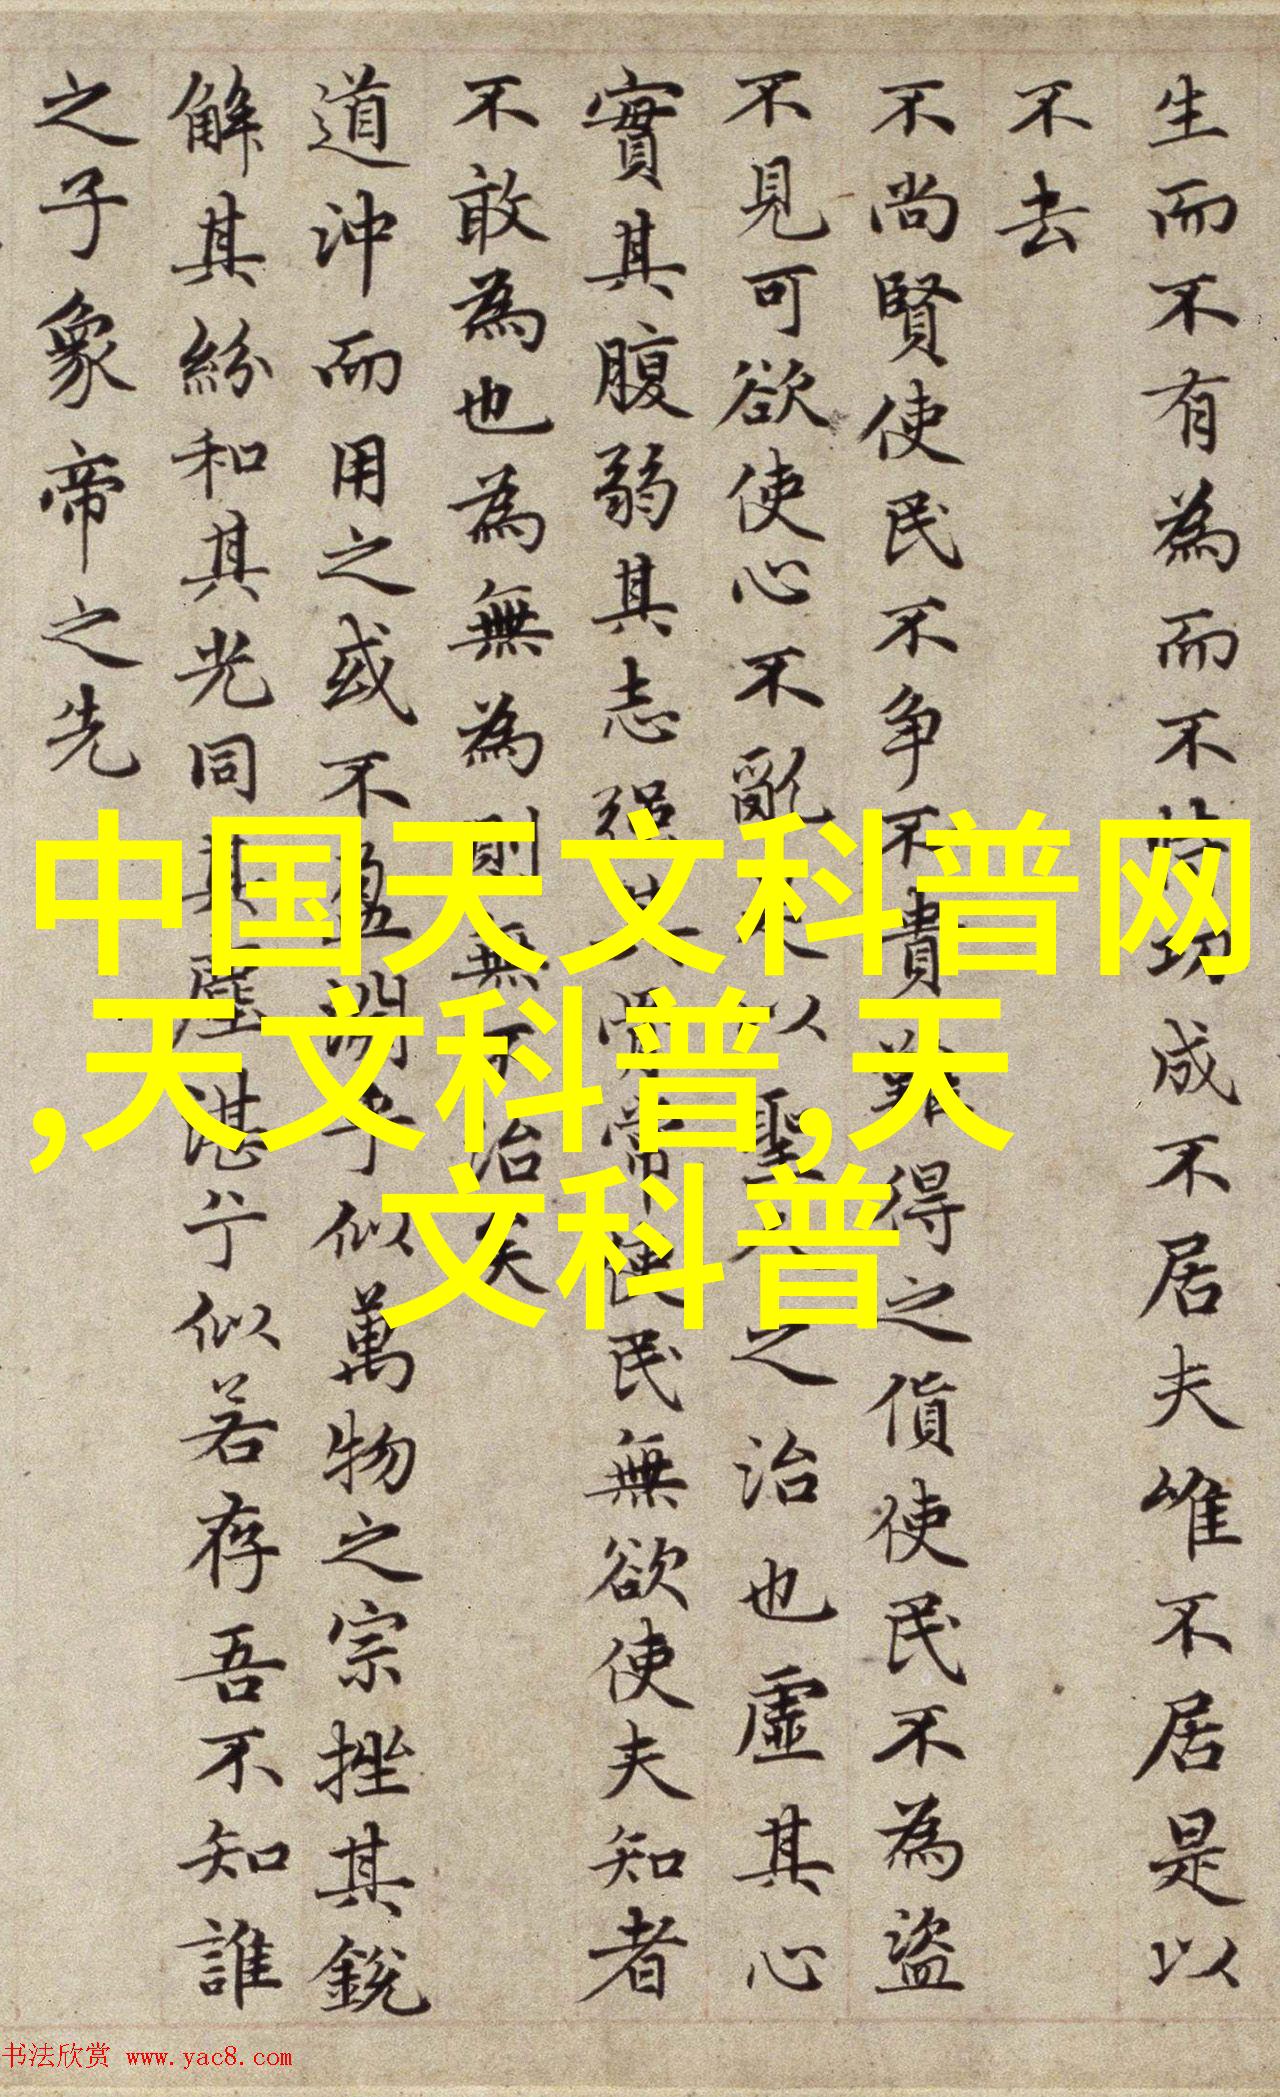 生而不有為而不恃功成不居夫唯不居是以
不去
不尚賢使民不争不貴難得之貨使民不為盜
不見可欲使心不亂是以聖人之治也虛其心
實其腹弱其志強其骨常使民無欲使夫知者
不敢為也為無為則無不治矣
道沖而用之或不盈淵乎似萬物之宗挫其銳
解其紛和其光同其塵湛兮似若存吾不知誰
之子象帝之先
中国天文科普网
,天文科普,天
文科普
书法欣赏 www.yac8.com